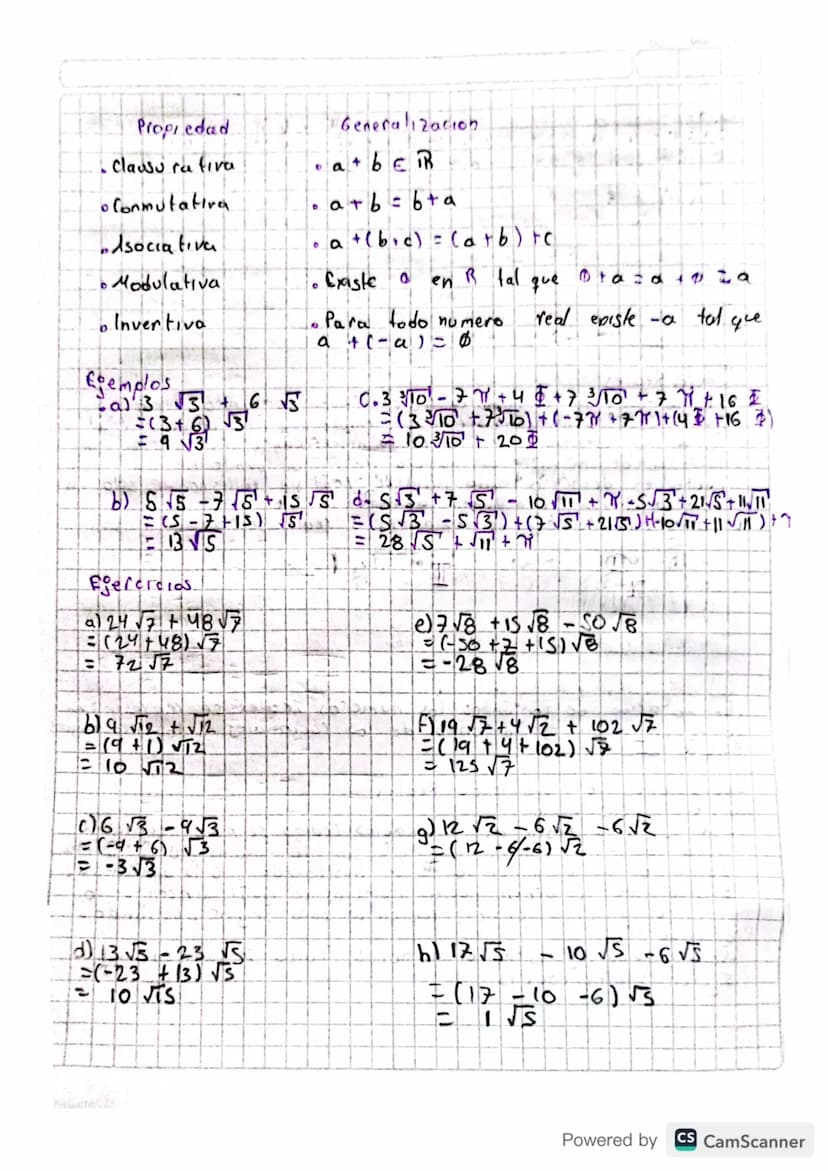 Propiedad Generalizacion
. Clausurativa . a + b ∈ ℝ
. Conmutativa . a + b = b + a
. Asociativa . a + (b + c) = (a + b) + c
. Modulativa . Existe 0 en R tal que 0 + a = a + 0 = a
. Invertiva . Para todo numero real existe -a tal que
a + (-a) = ∅
Ejemplos
. a) 3 √3 + 6 √3
= (3 + 6) √3
= 9 √3
C. 3 ∛10 - 7 π + 4 Φ + 7 ∛10 + 7 π + 16 Φ
= (3 ∛10 + 7 ∛10) + (-7π + 7π) + (4 Φ + 16 Φ)
= 10 ∛10 + 20 Φ
b) 5 √5 - 7 √5 + 15 √5
= (5 - 7 + 15) √5
= 13 √5
d. 5 √3 + 7 √5 - 10 √11 + π - 5 √3 + 21 √5 + 11 √11
= (5 √3 - 5 √3) + (7 √5 + 21 √5) + (-10 √11 + 11 √11) + π
= 28 √5 + √11 + π
Ejercicios
a) 24 √7 + 48 √7
= (24 + 48) √7
= 72 √7
e) 7 √8 + 15 √8 - 50 √8
= (-50 + 7 + 15) √8
= -28 √8
b) 9 √12 + √12
= (9 + 1) √12
= 10 √12
f) 19 √7 + 4 √2 + 102 √7
= (19 + 4 + 102) √7
= 125 √7
c) 6 √3 - 9 √3
= (-9 + 6) √3
= -3 √3
g) 12 √2 - 6 √2 - 6 √2
= (12 - 6 - 6) √2
d) 13 √5 - 23 √5
= (-23 + 13) √5
= 10 √15
h) 17 √5 - 10 √5 - 6 √5
= (17 - 10 - 6) √5
= 1 √5
Powered by CS CamScanner